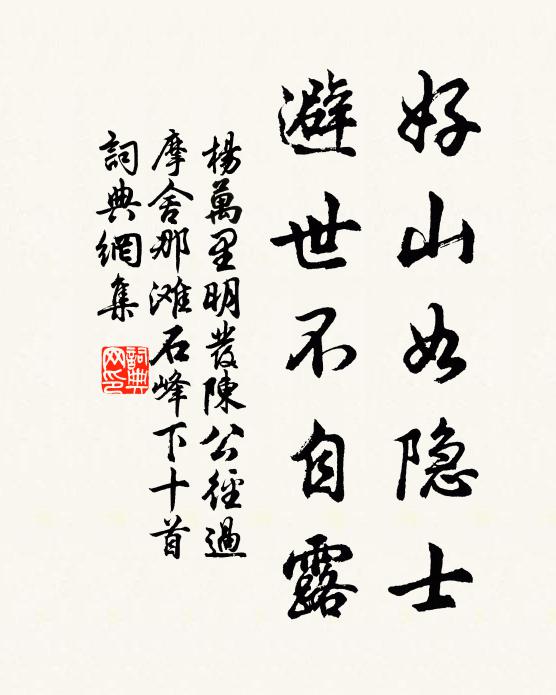 好山如隐士
避世不自露
楊萬里明發陳公徑過
摩舍那滩石峰下十首
詞典網集
詞典網印